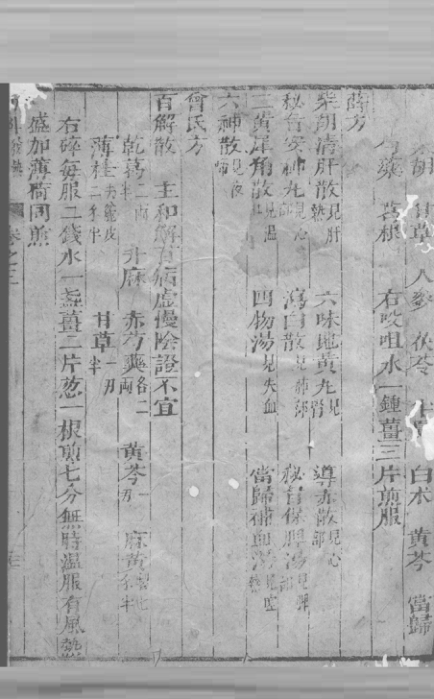 胡 甘草 人參 茯苓 白朮 黄芩 當歸
芍藥 葛根 右㕮咀水一鍾薑三片煎服
薛方
柴胡清肝散見肝 六味地黄丸見腎 導赤散見心部
秘旨安神丸見心部 瀉白散見肺部 秘旨保脾湯見脾部
二黄犀角散見温 四物湯見失血 當歸補血湯見
六神散見夜啼
曾氏方
百解散 主和解百病虚慢陰證不宜
乾葛二兩半 升麻 赤芍藥各二兩 黄芩一兩 麻黄
薄桂去皮二錢半 甘草一兩半
右碎每服二錢水一盞薑二片葱一根煎七分無時温服有風熱
盛加薄荷同煎
卷之三